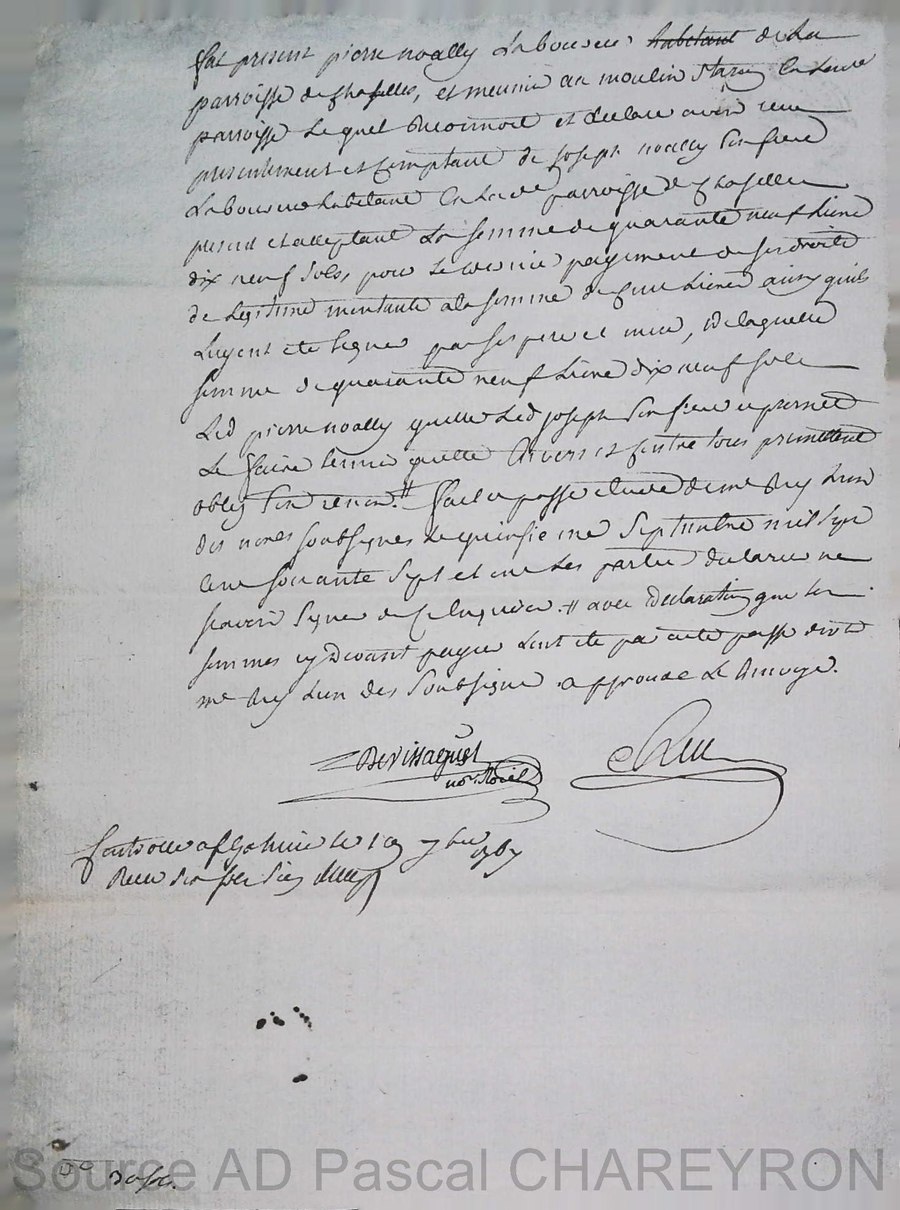 fut present pierre noally Laboureur habitant de la
parroisse de Chapelles, et meunier au moulin en lade
parroisse Lequel Reconnoit et declare avoir receu
presentement et Comptant de Joseph noally son frere
Laboureur habitant en lade parroisse de Chapelles
present et acceptant La somme de quarante neuf Livres
dix neuf sols, pour Le dernier payement de ses droits
de Legitime montante a la somme de Livres ainsy quils
Luy ont ete legues par ses pere et mere, de laquelle
somme de quarante neuf Livres dix neuf sols
Led pierre noally quitte Led joseph son frere et promet
Le faire tenir quitte Envers et Contre tous promettant
oblig son renon.# fait et passe etude de me Rey L'un
des nores soubsignes Le quinsieme Septembre mil sept
cent soixante sept et ont Les parties declare ne
scavoir signer de ce Enquises.# avec declaration que les
sommes cy devant payes L'ont ete par acte passe devt
me Rey L'un des Soubsignes approuve Le Renvoye.
Devissaguet
nore Roial
Rey
Controlle a St Galmier le 19 7bre 1767
Receu six sols
30 sols.
Source AD Pascal CHAREYRON